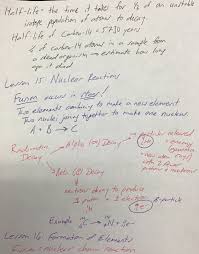 Half-life = the time it takes for 1/2 of an unstable
isotope population of atoms to decay.
Half-life of Carbon-14 = 5730 years
% of carbon-14 atoms in a sample from
a dead organism → estimate how long
ago it died
Lesson 15: Nuclear Reactions
Fusion occurs in stars!
Two elements combine to make a new element
Two nuclei joining together to make one nucleus.
A + B → C
Radioactive Decay
→ Alpha (α) Decay → particles released
→ energy
→ new atom
with 2 fewer
protons + neutrons
→ Beta (β) Decay
neutrons decay to produce
1 proton + 1 electron
β-particle
Example C → N +
Lesson 16: Formation of Elements
Fusion = nuclear chain reaction